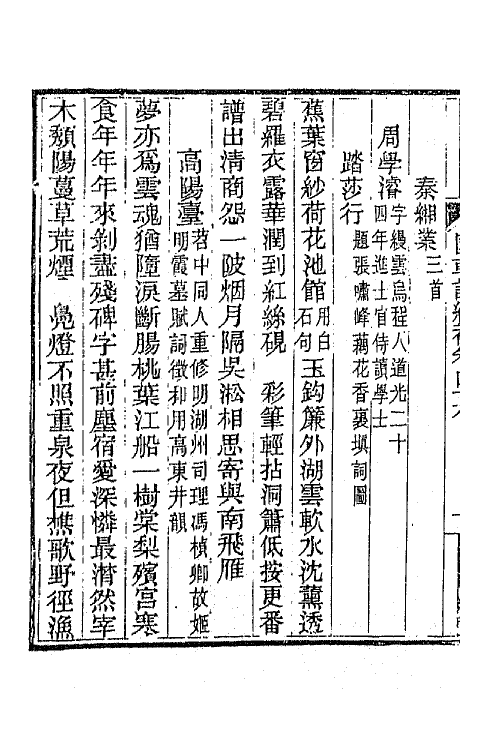 秦緗業三首
周學濬字縵雲烏程人道光二十四年進士官侍讀學士
踏莎行題張嘯峰藕花香裏填詞圖
蕉葉窗紗荷花池館用白石句　玉鈎簾外湖雲軟水沈薰透
碧羅衣露華潤到紅絲硯　彩筆輕拈洞簫低按更番
譜出清商怨一陂烟月隔吳淞相思寄與南飛雁
高陽臺苕中同人重修明湖州司理馮楨卿故姬明霞墓賦詞徵和用高東井韻
夢亦爲雲魂猶障淚斷腸桃葉江船一樹棠梨殯宮寒
食年年年來剝盡殘碑字甚前塵宿愛深憐最潸然宰
木頽陽蔓草荒煙　鳧燈不照重泉夜但樵歌野徑漁